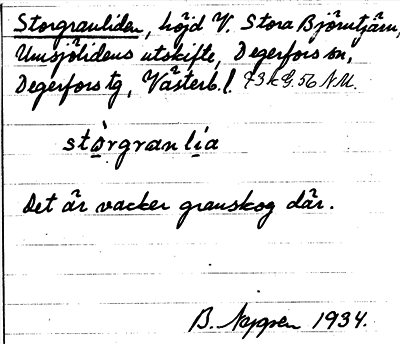 Storgranliden, höjd V. Stora Björntjärn,
Umsjölidens utskifte, Degerfors sn,
Degerfors tg, Västerb. l. 73 k G. 56 N.M.
stòrgranlía
Det är vacker granskog där.
B. Nygren 1934.